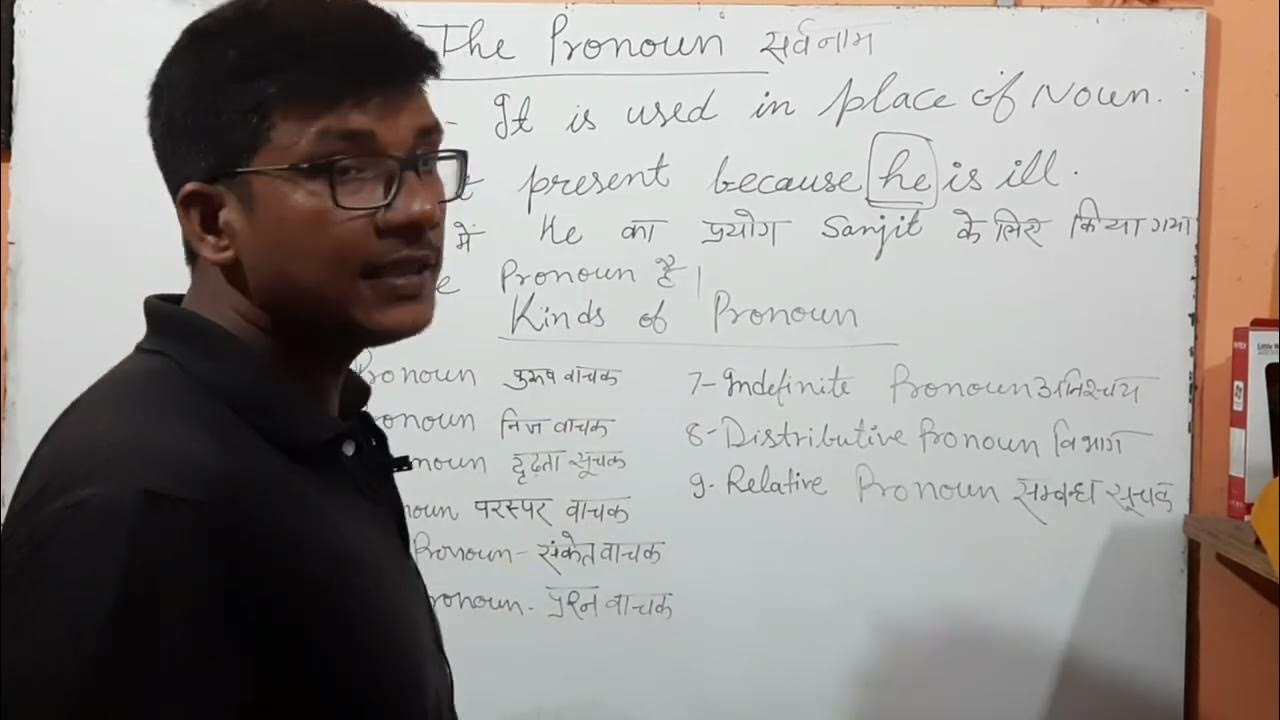 The Pronoun सर्वनाम
- It is used in place of Noun.
present because he is ill.
में He का प्रयोग Sanjit के लिए किया गया
Pronoun है।
Kinds of Pronoun
Pronoun पुरूष वाचक
निज वाचक
दृढ़ता सूचक
परस्पर वाचक
Pronoun - संकेत वाचक
प्रश्न वाचक
7- Indefinite Pronoun अनिश्चय
8- Distributive Pronoun विभाग
9. Relative Pronoun सम्बन्ध सूचक